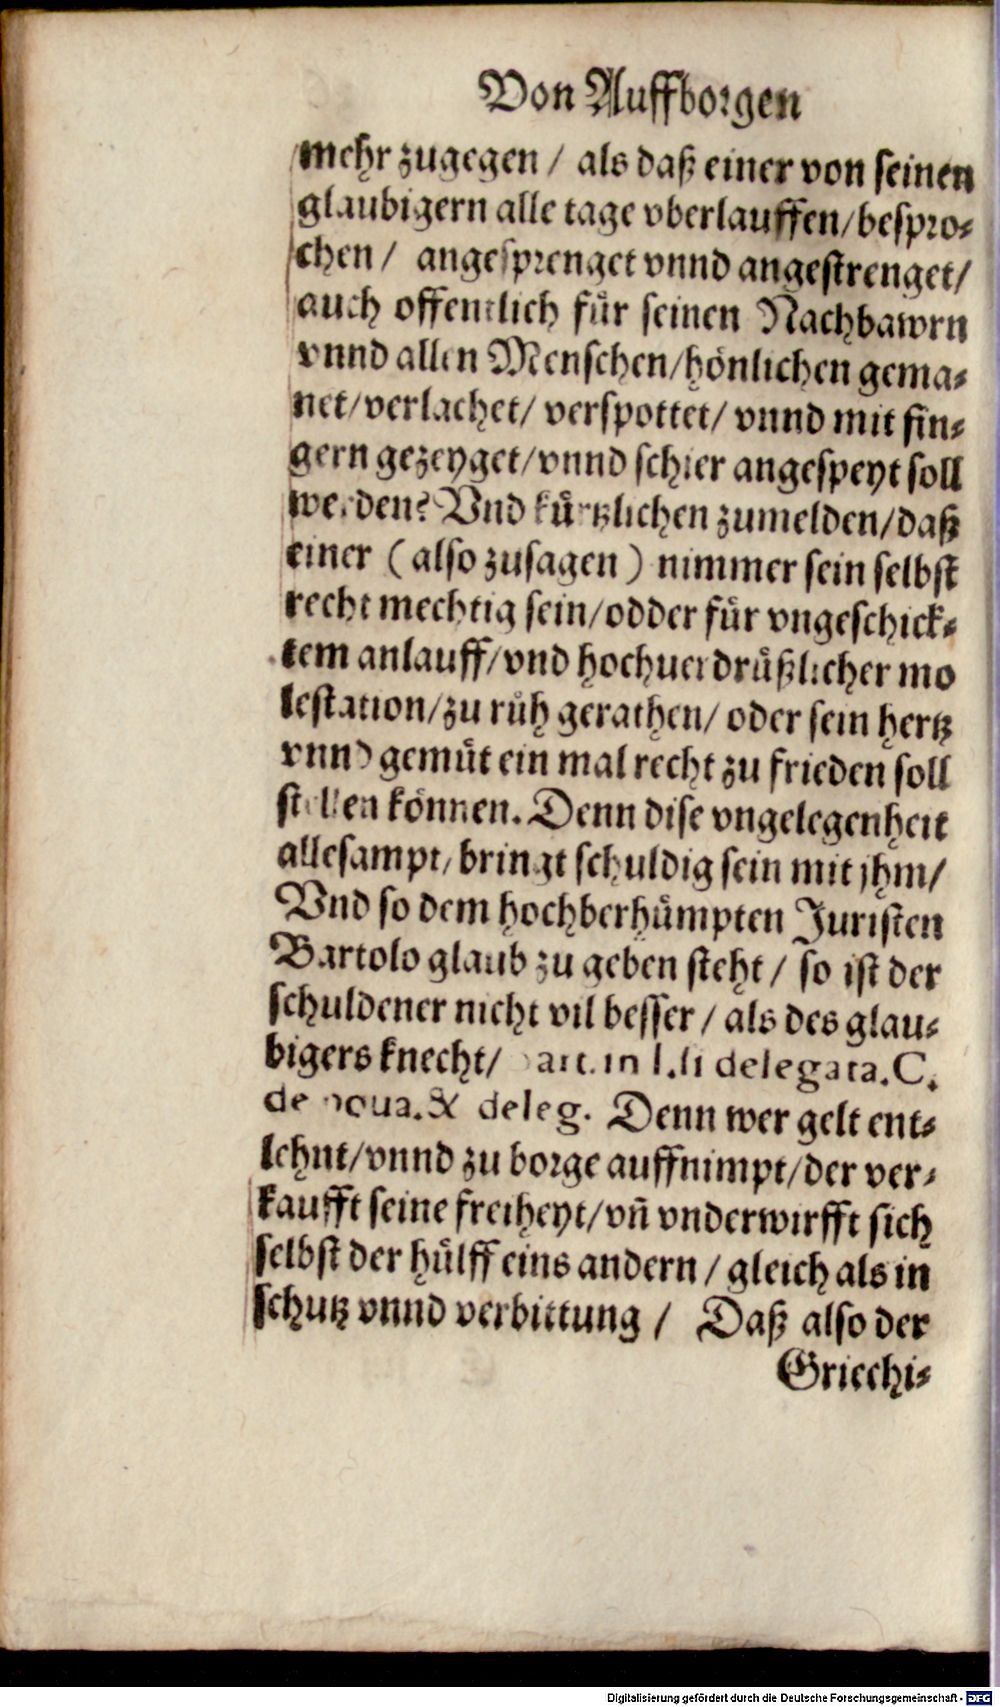 Von Auffborgen
mehr zugegen / als daß einer von seinen
glaubigern alle tage vberlauffen/bespro⸗
chen / angesprenget vnnd angestrenget/
auch offentlich fuͤr seinen Nachbawrn
vnnd allen Menschen/hoͤnlichen gema⸗
net/verlachet/ verspottet/ vnnd mit fin⸗
gern gezeyget/vnnd schier angespeyt soll
werden? Vnd kuͤrtzlichen zumelden/daß
einer (also zusagen) nimmer sein selbst
recht mechtig sein/odder fuͤr vngeschick⸗
tem anlauff/vnd hochuerdruͤßlicher mo
lestation/zu ruͤh gerathen/ oder sein hertz
vnnd gemuͤt ein mal recht zu frieden soll
stellen koͤnnen. Denn dise vngelegenheit
allesampt/ bringt schuldig sein mit jhm/
Vnd so dem hochberhuͤmpten Juristen
Bartolo glaub zu geben steht / so ist der
schuldener nicht vil besser / als des glau⸗
bigers knecht/ Bart. in l. si delegata. C.
de noua. & deleg. Denn wer gelt ent⸗
lehnt/vnnd zu borge auffnimpt/der ver⸗
kaufft seine freiheyt/vñ vnderwirfft sich
selbst der huͤlff eins andern / gleich als in
schutz vnnd verbittung / Daß also der
Griechi⸗
Digitalisierung gefördert durch die Deutsche Forschungsgemeinschaft - DFG